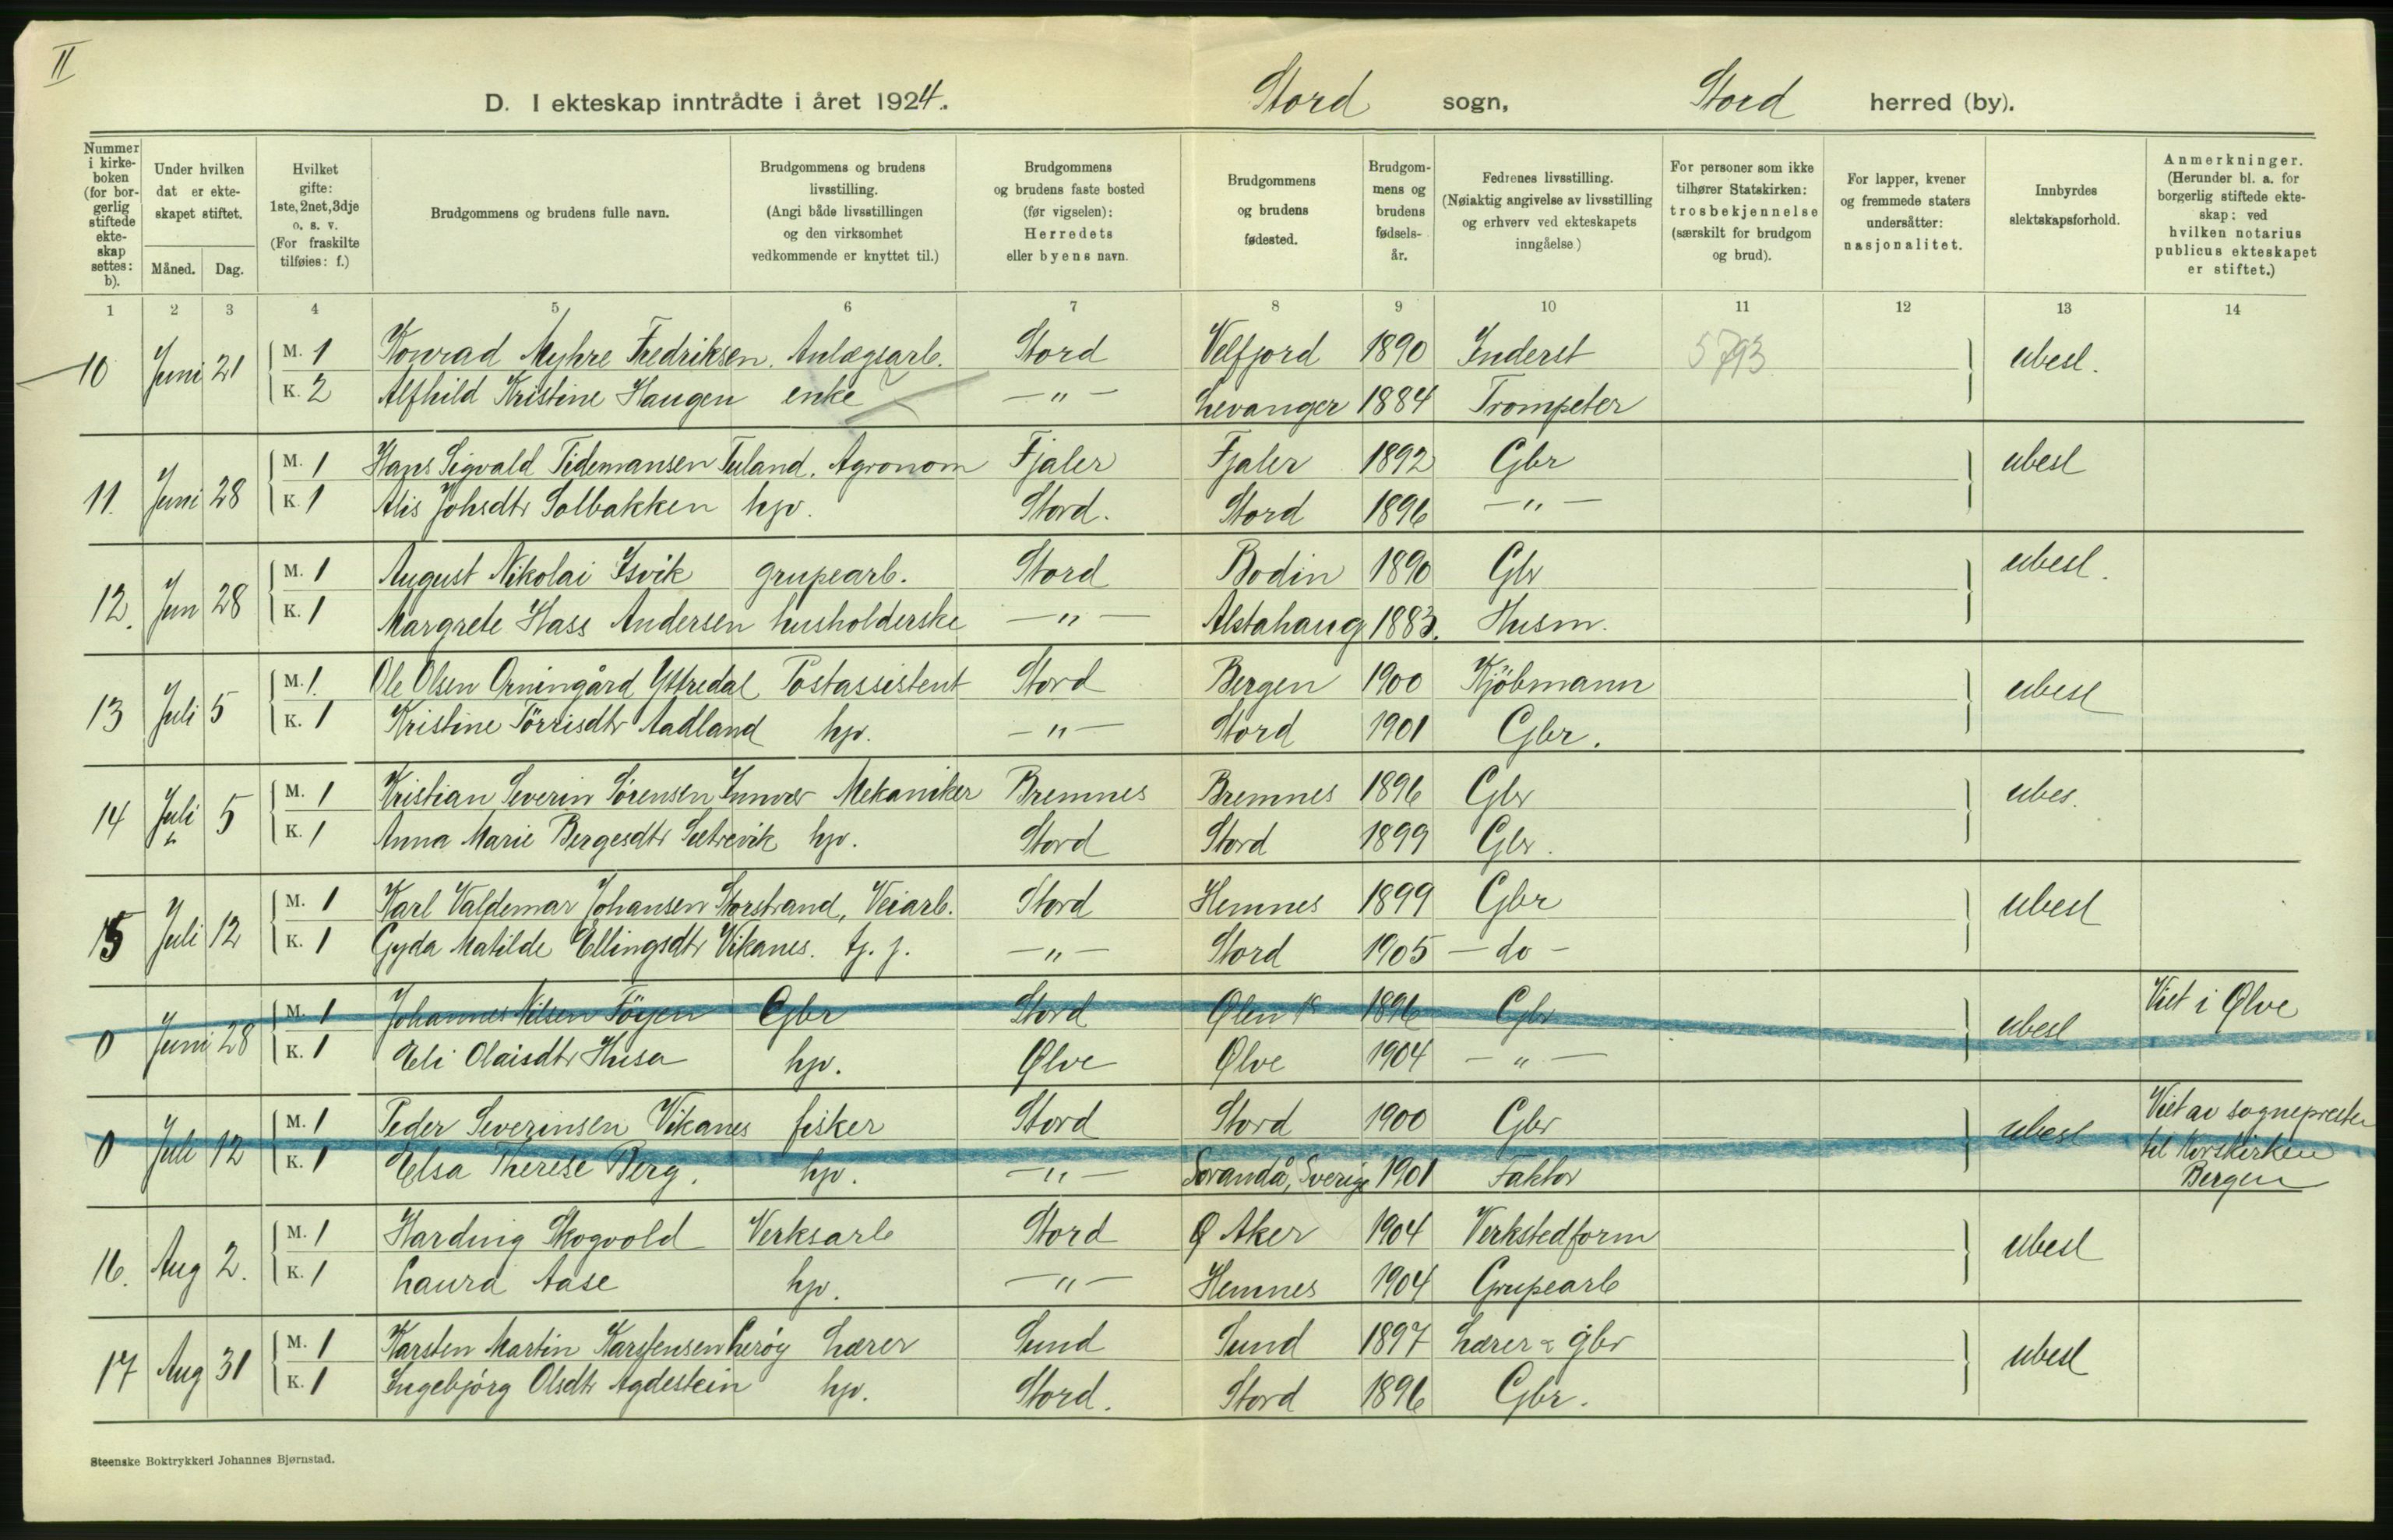 II
D. I ekteskap inntrådte i året 1924. Stord sogn, Stord herred (by).
Nummer i kirke-boken (for bor-gerlig stiftede ekte-skap settes: b).
Under hvilken dat er ekte-skapet stiftet.
Måned. Dag.
Hvilket gifte: 1ste, 2net, 3dje o. s. v. (For fraskilte tilføies: f.)
Brudgommens og brudens fulle navn.
Brudgommens og brudens livsstilling. (Angi både livsstillingen og den virksomhet vedkommende er knyttet til.)
Brudgommens og brudens faste bosted (før vigselen): Herredets eller byens navn.
Brudgommens og brudens fødested.
Brudgom-mens og brudens fødsels-år.
Fedrenes livsstilling. (Nøiaktig angivelse av livsstilling og erhverv ved ekteskapets inngåelse)
For personer som ikke tilhører Statskirken: trosbekjennelse (særskilt for brudgom og brud).
For lapper, kvener og fremmede staters undersåtter: nasjonalitet.
Innbyrdes slektskapsforhold.
Anmerkninger. (Herunder bl. a. for borgerlig stiftede ekte-skap: ved hvilken notarius publicus ekteskapet er stiftet.)
1 2 3 4 5 6 7 8 9 10 11 12 13 14
10 Juni 21 M. 1 Konrad Myhre Fredriksen. Anlægsarb. Stord Velfjord 1890 Inderst 5793 ubesl.
K. 2 Alfhild Kristine Haugen enke — " — Levanger 1884 Trompeter
11. Juni 28 M. 1 Hans Sigvald Tidemansen Tuland. Agronom Fjaler Fjaler 1892 Gbr ubesl
K. 1 Alis Johsdtr Solbakken hjv. Stord. Stord 1896 — " —
12. Jun 28 M. 1 August Nikolai Isvik grupearb. Stord Bodin 1890 Gbr ubesl.
K. 1 Margrete Hass Andersen husholderske — " — Alstahaug 1883. Husm.
13 Juli 5 M. 1. Ole Olsen Orningård Yttredal Postassistent Stord Bergen 1900 Kjöbmann ubesl
K. 1 Kristine Törrisdtr Aadland hjv. — " — Stord 1901 Gbr.
14 Juli 5 M. 1 Kristian Severin Sörensen Mekaniker Bremnes Bremnes 1896 Gbr ubes.
K. 1 Anna Marie Bergesdtr Sætrevik hjv. Stord Stord 1899 Gbr.
15 Juli 12 M. 1 Karl Valdemar Johansen Storstrand, Veiarb. Stord Hemnes 1899 Gbr ubesl
K. 1 Gyda Matilde Ellingsdtr Vikanes. tj. j. — " — Stord 1905 — do —
0 Juni 28 M. 1 Johannes Nilsen Föyen Gbr Stord Ølen 1896 Gbr ubesl Viet i Ølve
K. 1 Eli Olaisdtr Husa hjv. Ølve Ølve 1904 — " —
0 Juli 12 M. 1 Peder Severinsen Vikanes fisker Stord Stord 1900 Gbr ubesl Viet av sogneprester
K. 1 Elsa Therese Berg. hjv. — " — Sverige 1901 Faktor til Korskirken
Bergen
16. Aug 2. M. 1 Harding Skogvold Verksarb Stord Ø Aker 1904 Verkstedform ubesl
K. 1 Laura Aase hjv. — " — Hemnes 1904 Grupearb
17 Aug 31 M. 1 Karsten Martin Karstensen Lerøy Lærer Sund Sund 1897 Lærer & gbr ubesl
K. 1 Ingebjörg Olsdtr Agdestein hjv. Stord. Stord 1896 Gbr.
Steenske Boktrykkeri Johannes Bjørnstad.